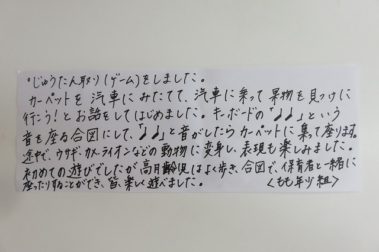 ・じゅうたん取り(ゲーム)をしました。
カーペットを汽車にみたてて、汽車に乗って果物を見つけに
行こう!とお話をしてはじめました。キーボードの「♩♩」という
音を座る合図にして、「♩♩」と音がしたらカーペットに集って座ります。
途中で、ウサギ、カメ、ライオンなどの動物に変身し、表現も楽しみました。
初めての遊びでしたが高月齢児はよく歩き、合図で、保育者と一緒に
座ったりすることができ、皆、楽しく遊べました。 <もも年少組>